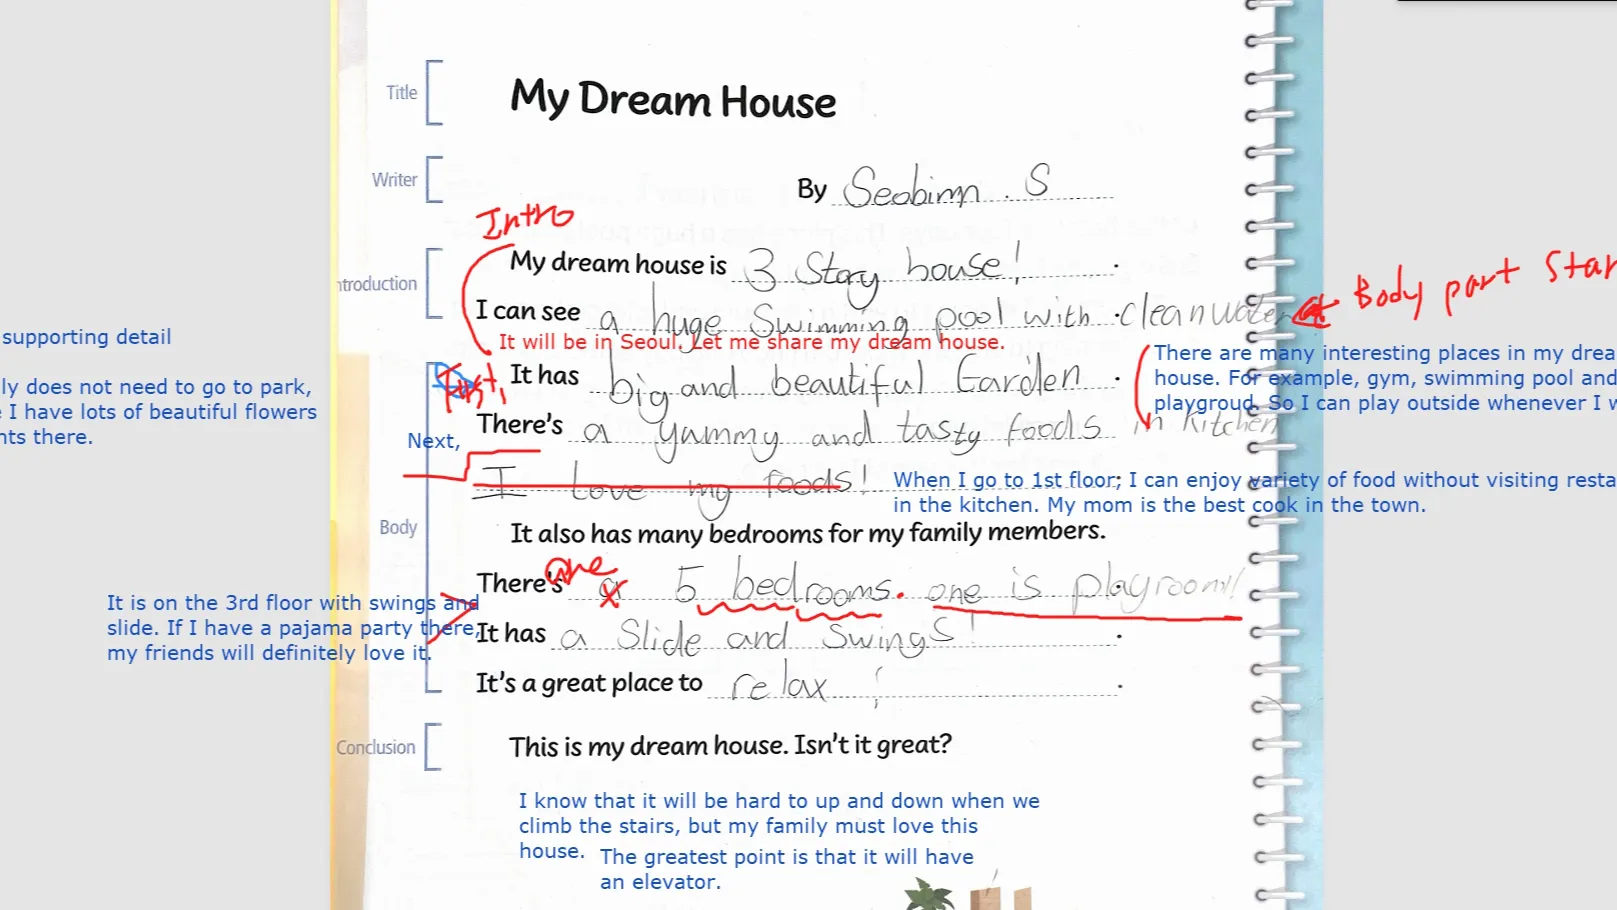 Title
My Dream House
Writer
By Seobinn. S
Intro
Introduction
My dream house is 3 Story house! .
I can see a huge Swimming pool with clean water .
Body part Star
It will be in Seoul. Let me share my dream house.
supporting detail
There are many interesting places in my drea
house. For example, gym, swimming pool and
playgroud. So I can play outside whenever I w
ly does not need to go to park,
I have lots of beautiful flowers
nts there.
First, It has big and beautiful Garden .
There's a yummy and tasty foods in kitchen
Next,
I love my foods!
When I go to 1st floor; I can enjoy variety of food without visiting resta
in the kitchen. My mom is the best cook in the town.
Body
It also has many bedrooms for my family members.
One
There's a 5 bedrooms. one is playroom!
It is on the 3rd floor with swings and
slide. If I have a pajama party there,
my friends will definitely love it.
It has a Slide and Swings! .
It's a great place to relax ! .
Conclusion
This is my dream house. Isn't it great?
I know that it will be hard to up and down when we
climb the stairs, but my family must love this
house.
The greatest point is that it will have
an elevator.